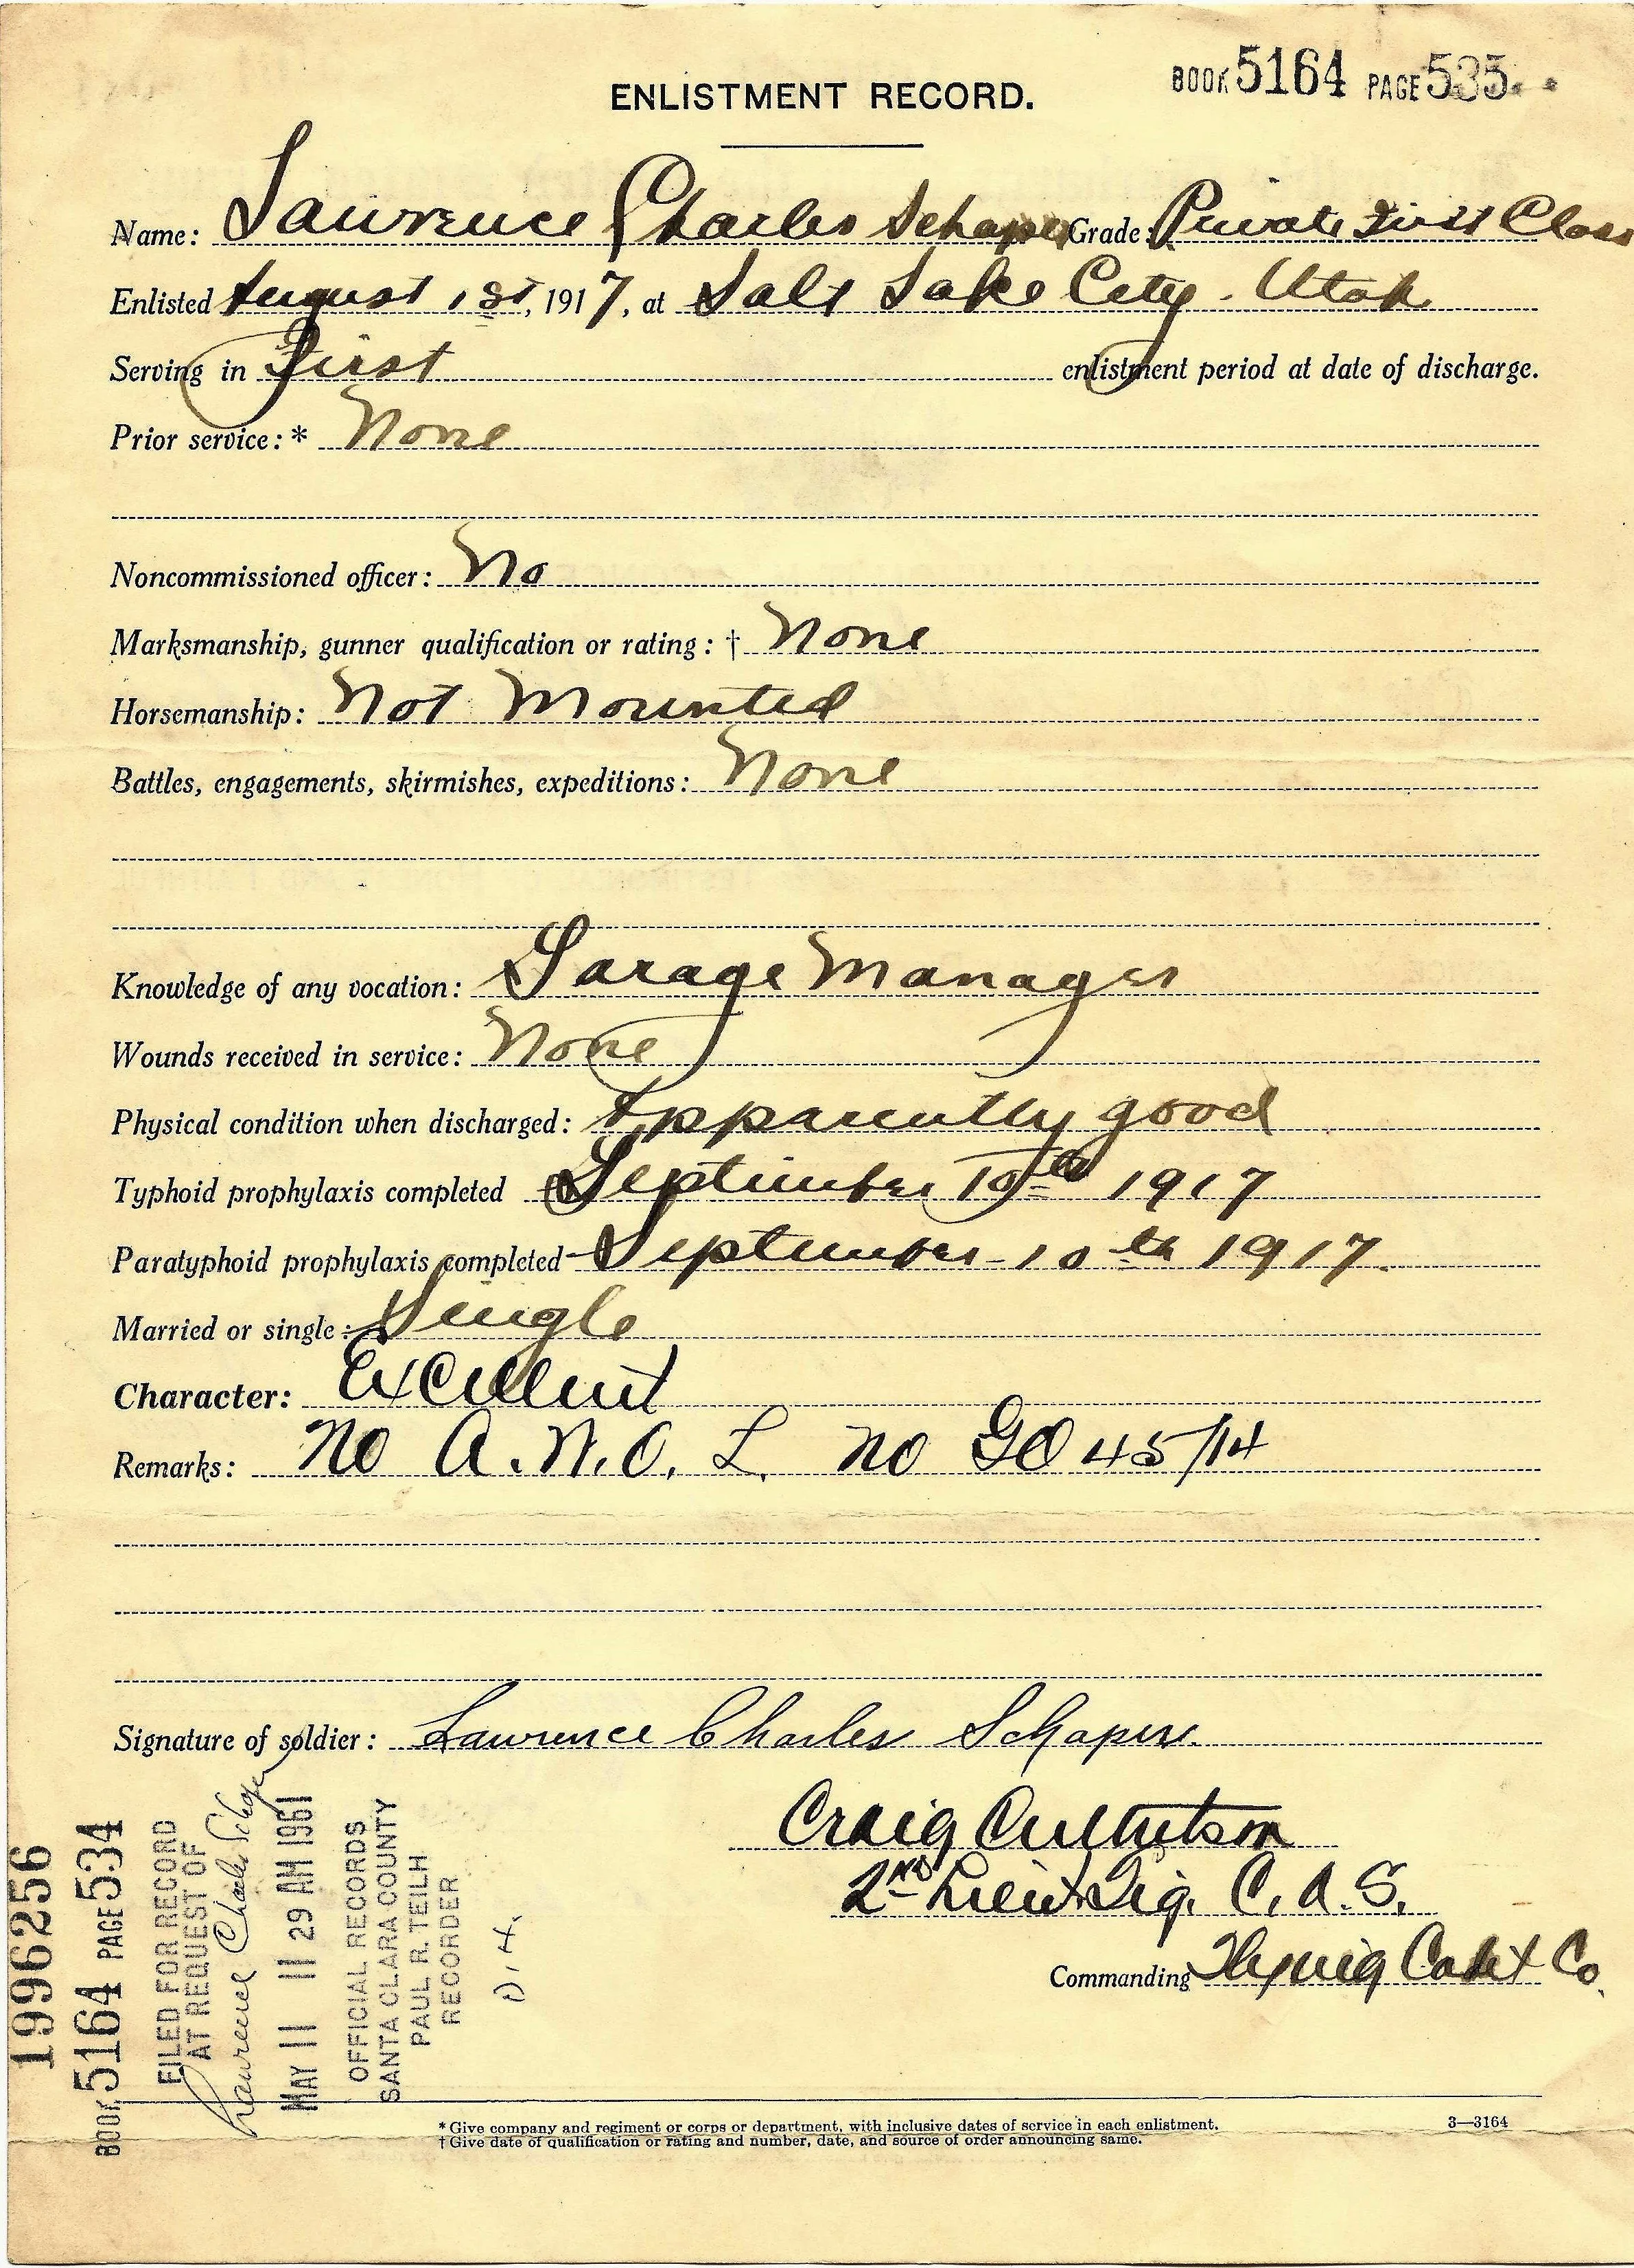 BOOK 5164 PAGE 535
ENLISTMENT RECORD.
Name: Lawrence Charles Schaper Grade: Private First Class
Enlisted August 1st, 1917, at Salt Lake City. Utah
Serving in First enlistment period at date of discharge.
Prior service: * None
Noncommissioned officer: No
Marksmanship, gunner qualification or rating: † None
Horsemanship: Not Mounted
Battles, engagements, skirmishes, expeditions: None
Knowledge of any vocation: Garage Manager
Wounds received in service: None
Physical condition when discharged: Apparently good
Typhoid prophylaxis completed September 10th 1917
Paratyphoid prophylaxis completed September 10th 1917.
Married or single: Single
Character: Excellent
Remarks: No A.W.O.L. no GO 45/14
Signature of soldier: Lawrence Charles Schaper.
Craig Culbertson
2nd Lieut Sig. C. A. S.
Commanding Flying Cadet Co.
1996256
BOOK 5164 PAGE 534
FILED FOR RECORD
AT REQUEST OF
Lawrence Charles Schaper
MAY 11 11 29 AM 1961
OFFICIAL RECORDS
SANTA CLARA COUNTY
PAUL R. TEILH
RECORDER
D.H.
* Give company and regiment or corps or department, with inclusive dates of service in each enlistment.
† Give date of qualification or rating and number, date, and source of order announcing same.
3—3164